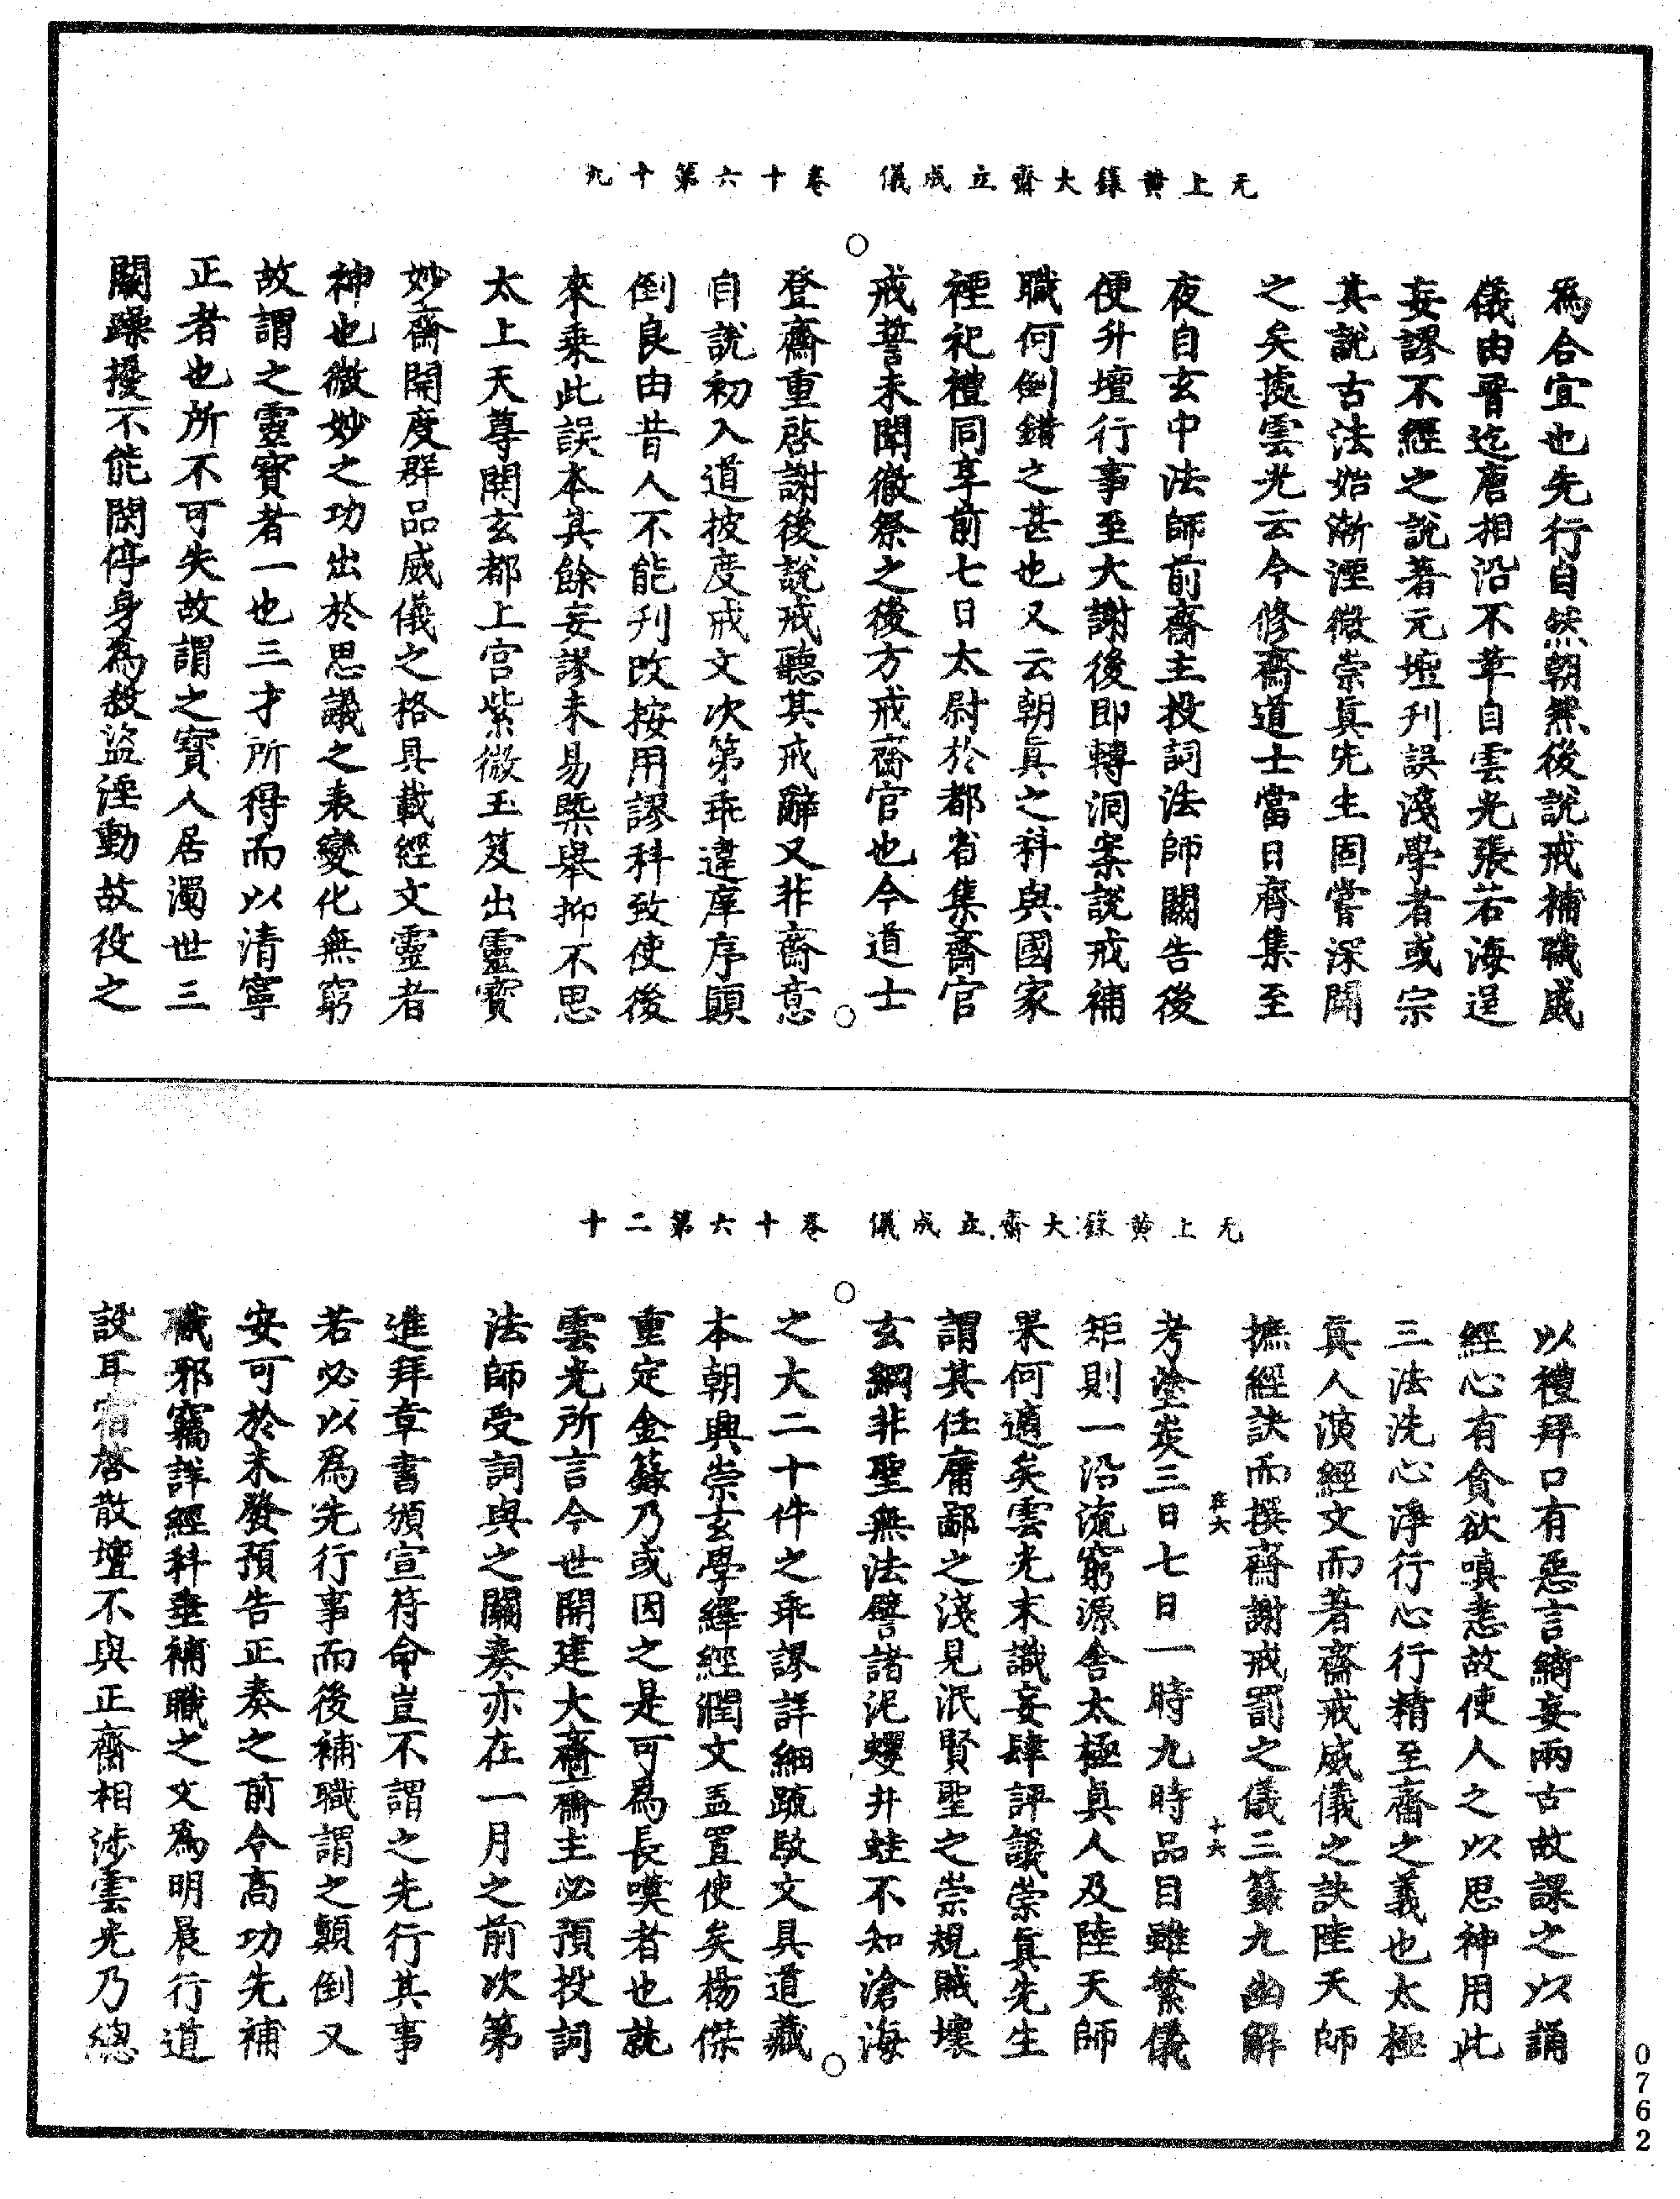 无上黄籙大齋立成儀　卷十六第十九
為合宜也先行自然朝然後說戒補職威
儀由晉迄唐相沿不革自雲光張若海逞
妄謬不經之說著元壇刊誤淺學者或宗
其說古法始漸湮微崇眞先生固嘗深闢
之矣據雲光云今修齋道士當日齊集至
夜自玄中法師前齋主投詞法師關告後
便升壇行事至大謝後即轉洞案說戒補
職何倒錯之甚也又云朝眞之科與國家
禋祀禮同享前七日太尉於都省集齋官
戒誓未聞徹祭之後方戒齋官也今道士
登齋重啓謝後說戒聽其戒辭又非齋意
自說初入道披度戒文次第乖違庠序顛
倒良由昔人不能刋改按用謬科致使後
來乘此誤本真餘妄謬未易槩舉抑不思
太上天尊開玄都上宫紫微玉笈出靈寶
妙齋開度群品威儀之格具載經文靈者
神也微妙之功出於思議之表變化無窮
故謂之靈寶者一也三才所得而以清寧
正者也所不可失故謂之寶人居濁世三
關躁擾不能閑停身為殺盜淫動故役之
无上黄籙大齋立成儀　卷十六第二十
以禮拜口有惡言綺妄兩古故課之以誦
經心有貪欲嗔恚故使人之以思神用此
三法洗心淨行心行精至齋之義也太極
眞人演經文而著齋戒威儀之訣陸天師
摭經訣而撰齋謝戒罰之儀三籙九幽解
考塗炭三日七日一時九時品目雖繁儀
在六　十六
矩則一沿流窮源舍太極真人及陸天師
果何適矣雲光末識妄肆評議崇眞先生
謂其任庸鄙之淺見泯賢聖之崇規賊壞
玄綱非聖無法譬諸泥蟃井蛙不知滄海
之大二十件之乖謬詳細疏駁文具道藏
本朝興崇玄學繹經潤文盖置使矣楊傑
重定金籙乃或因之是可為長嘆者也就
雲光所言今世開建大齋齋主必預投詞
法師受詞與之關奏亦在一月之前次第
進拜章書頒宣符命豈不謂之先行其事
若必以為先行事而後補職謂之顛倒又
安可於未發預告正奏之前令高功先補
職邪竊詳經科垂補職之文為明晨行道
設耳宿啓散壇不與正齋相涉雲光乃總
0762